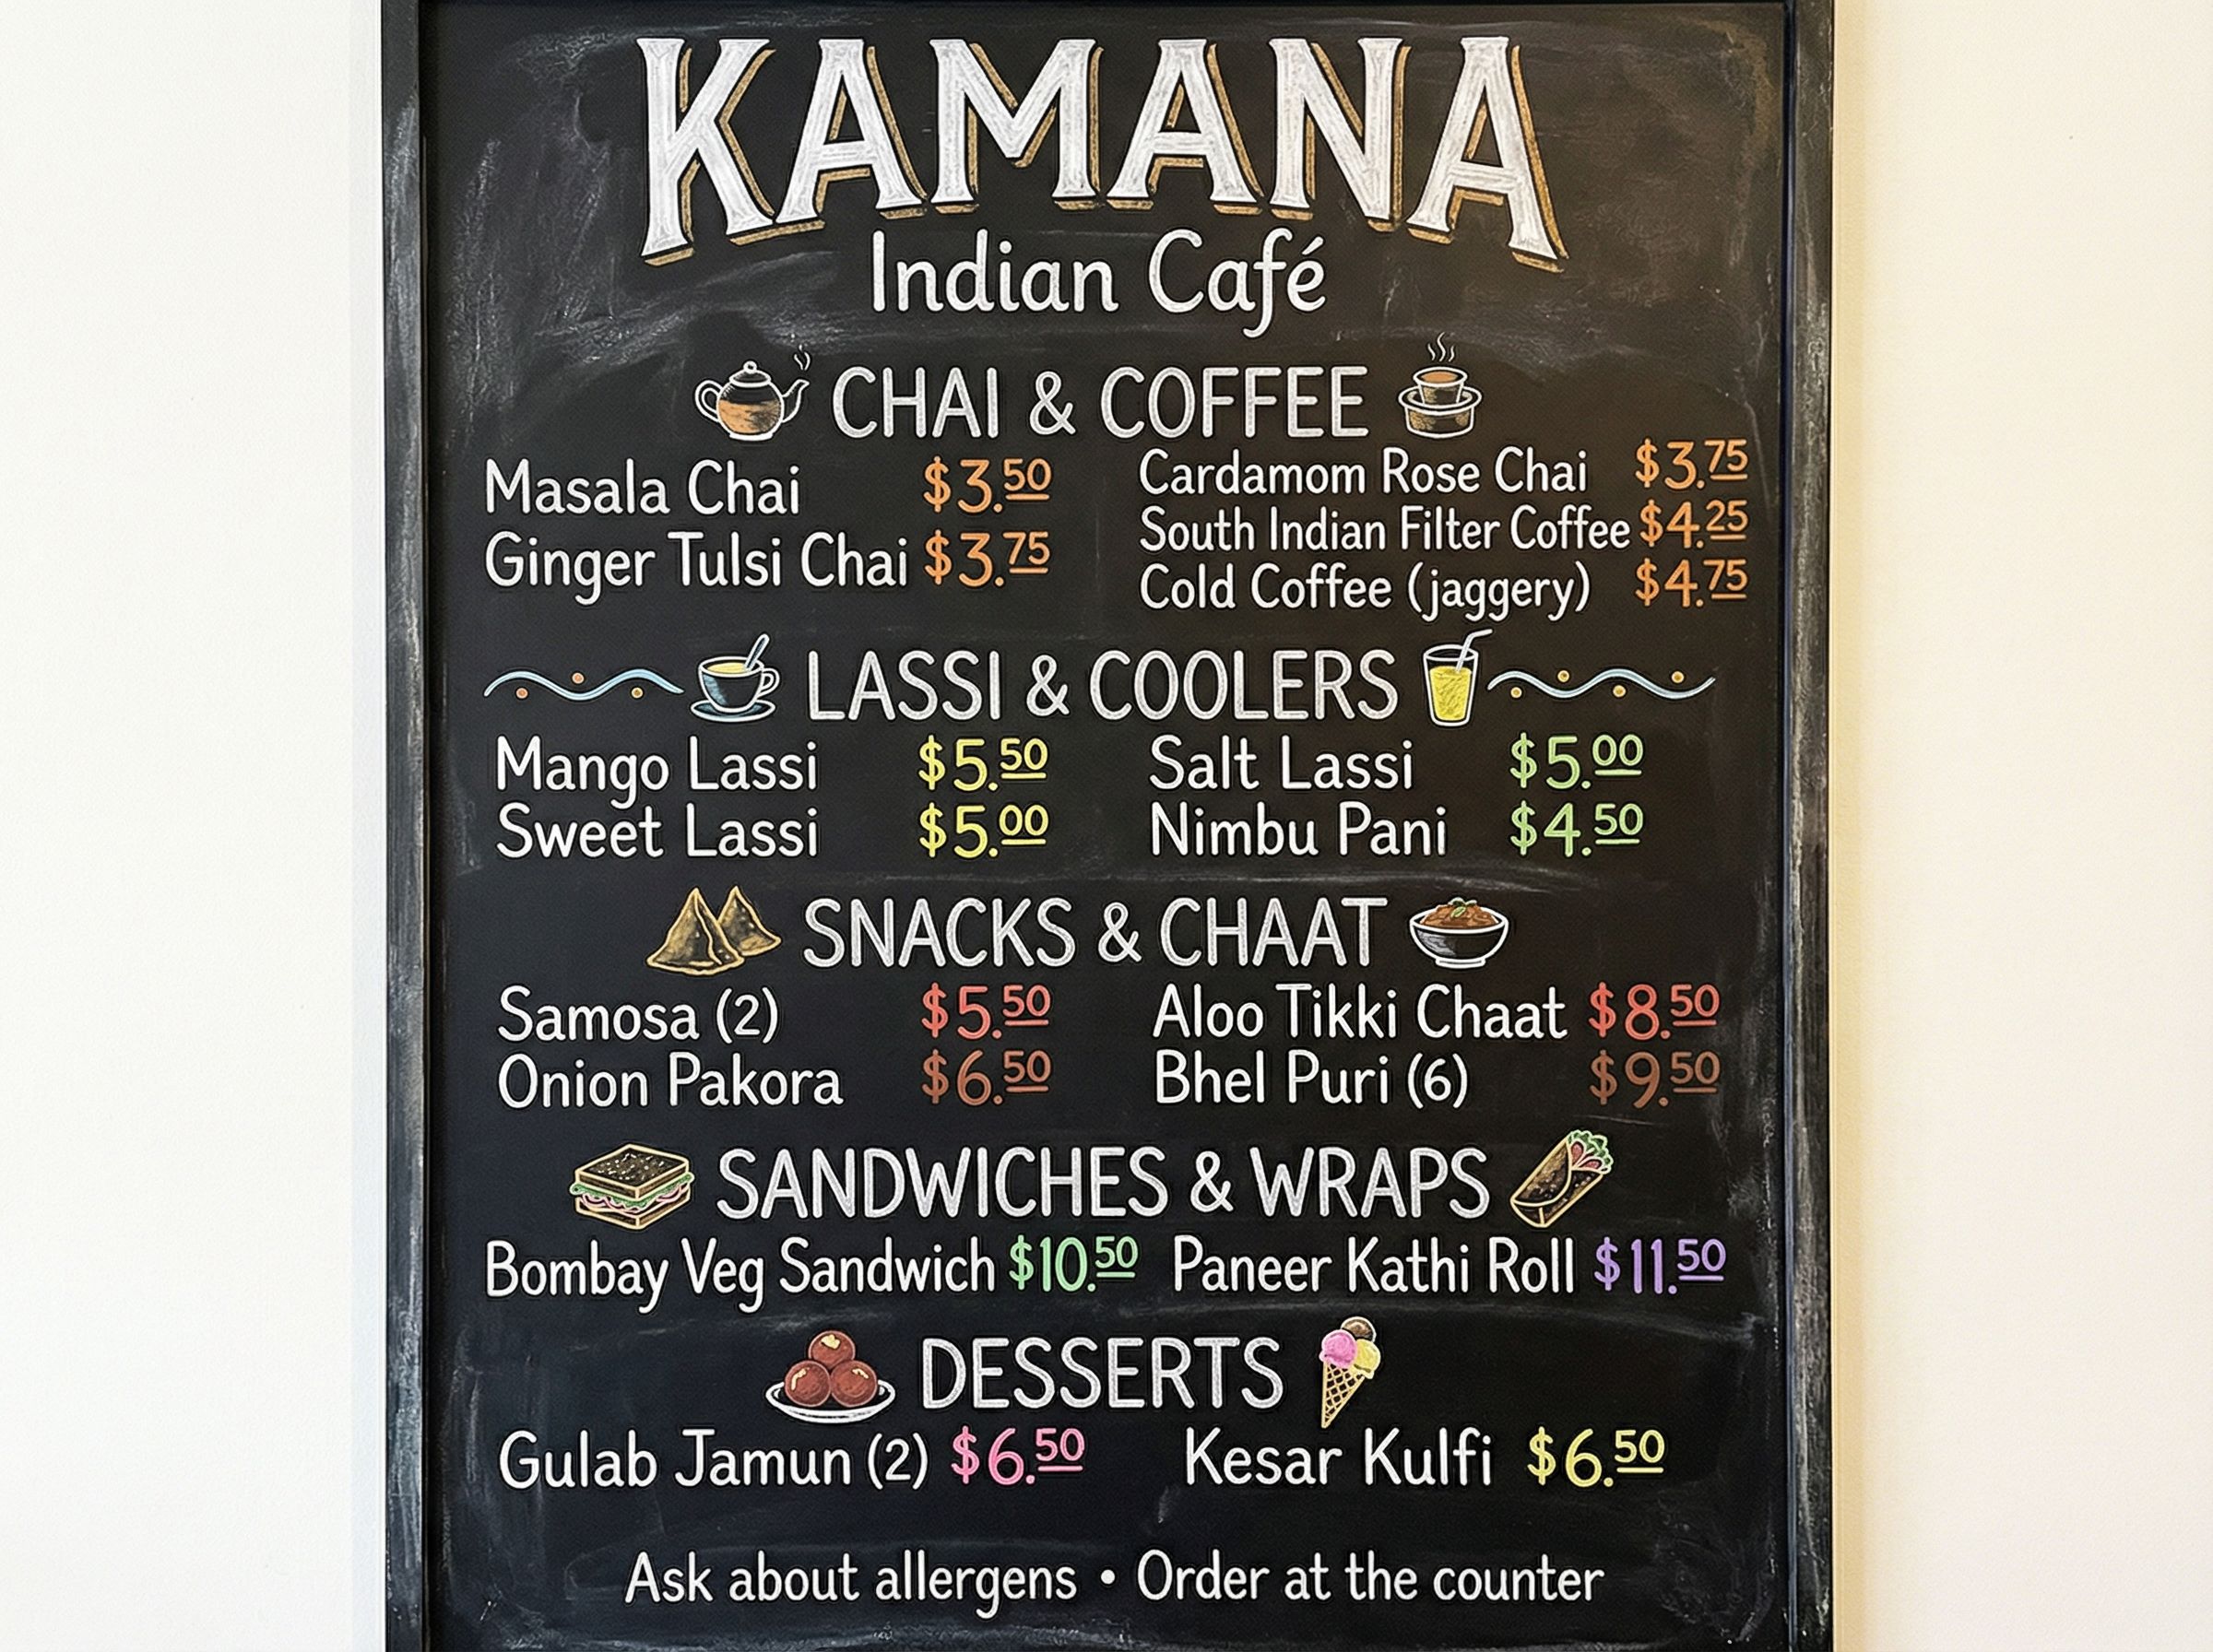 KAMANA
Indian Café
CHAI & COFFEE
Masala Chai $3.50
Ginger Tulsi Chai $3.75
Cardamom Rose Chai $3.75
South Indian Filter Coffee $4.25
Cold Coffee (jaggery) $4.75
LASSI & COOLERS
Mango Lassi $5.50
Sweet Lassi $5.00
Salt Lassi $5.00
Nimbu Pani $4.50
SNACKS & CHAAT
Samosa (2) $5.50
Onion Pakora $6.50
Aloo Tikki Chaat $8.50
Bhel Puri (6) $9.50
SANDWICHES & WRAPS
Bombay Veg Sandwich $10.50
Paneer Kathi Roll $11.50
DESSERTS
Gulab Jamun (2) $6.50
Kesar Kulfi $6.50
Ask about allergens • Order at the counter